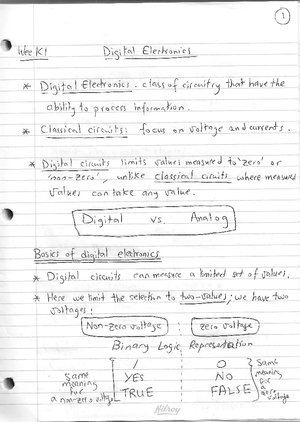 1
Week 1 Digital Electronics
* Digital Electronics: class of circuitry that have the
ability to process information.
* Classical circuits: focus on voltage and currents.
* Digital circuits limits values measured to 'zero' or
'non-zero', unlike classical circuits where measured
values can take any value.
Digital vs. Analog
Basics of digital electronics
* Digital circuits can measure a limited set of values.
* Here we limit the selection to two-values; we have two
voltages:
Non-zero voltage zero voltage
Binary Logic Representation
1 0
YES NO
TRUE FALSE
Same
meaning
for
a non-zero voltage
Same
meaning
for
a zero
voltage
Hilroy